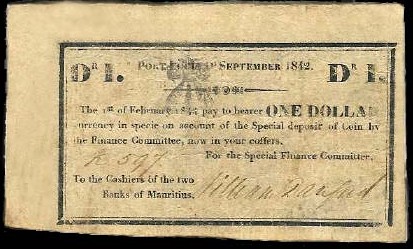 Dr 1. PORT LOUIS, 1st SEPTEMBER 1842. Dr 1.
The 1st of February 1844 pay to bearer ONE DOLLAR
currency in specie on account of the Special deposit of Coin by
the Finance Committee, now in your coffers.
For the Special Finance Committee.
To the Cashiers of the two
Banks of Mauritius.